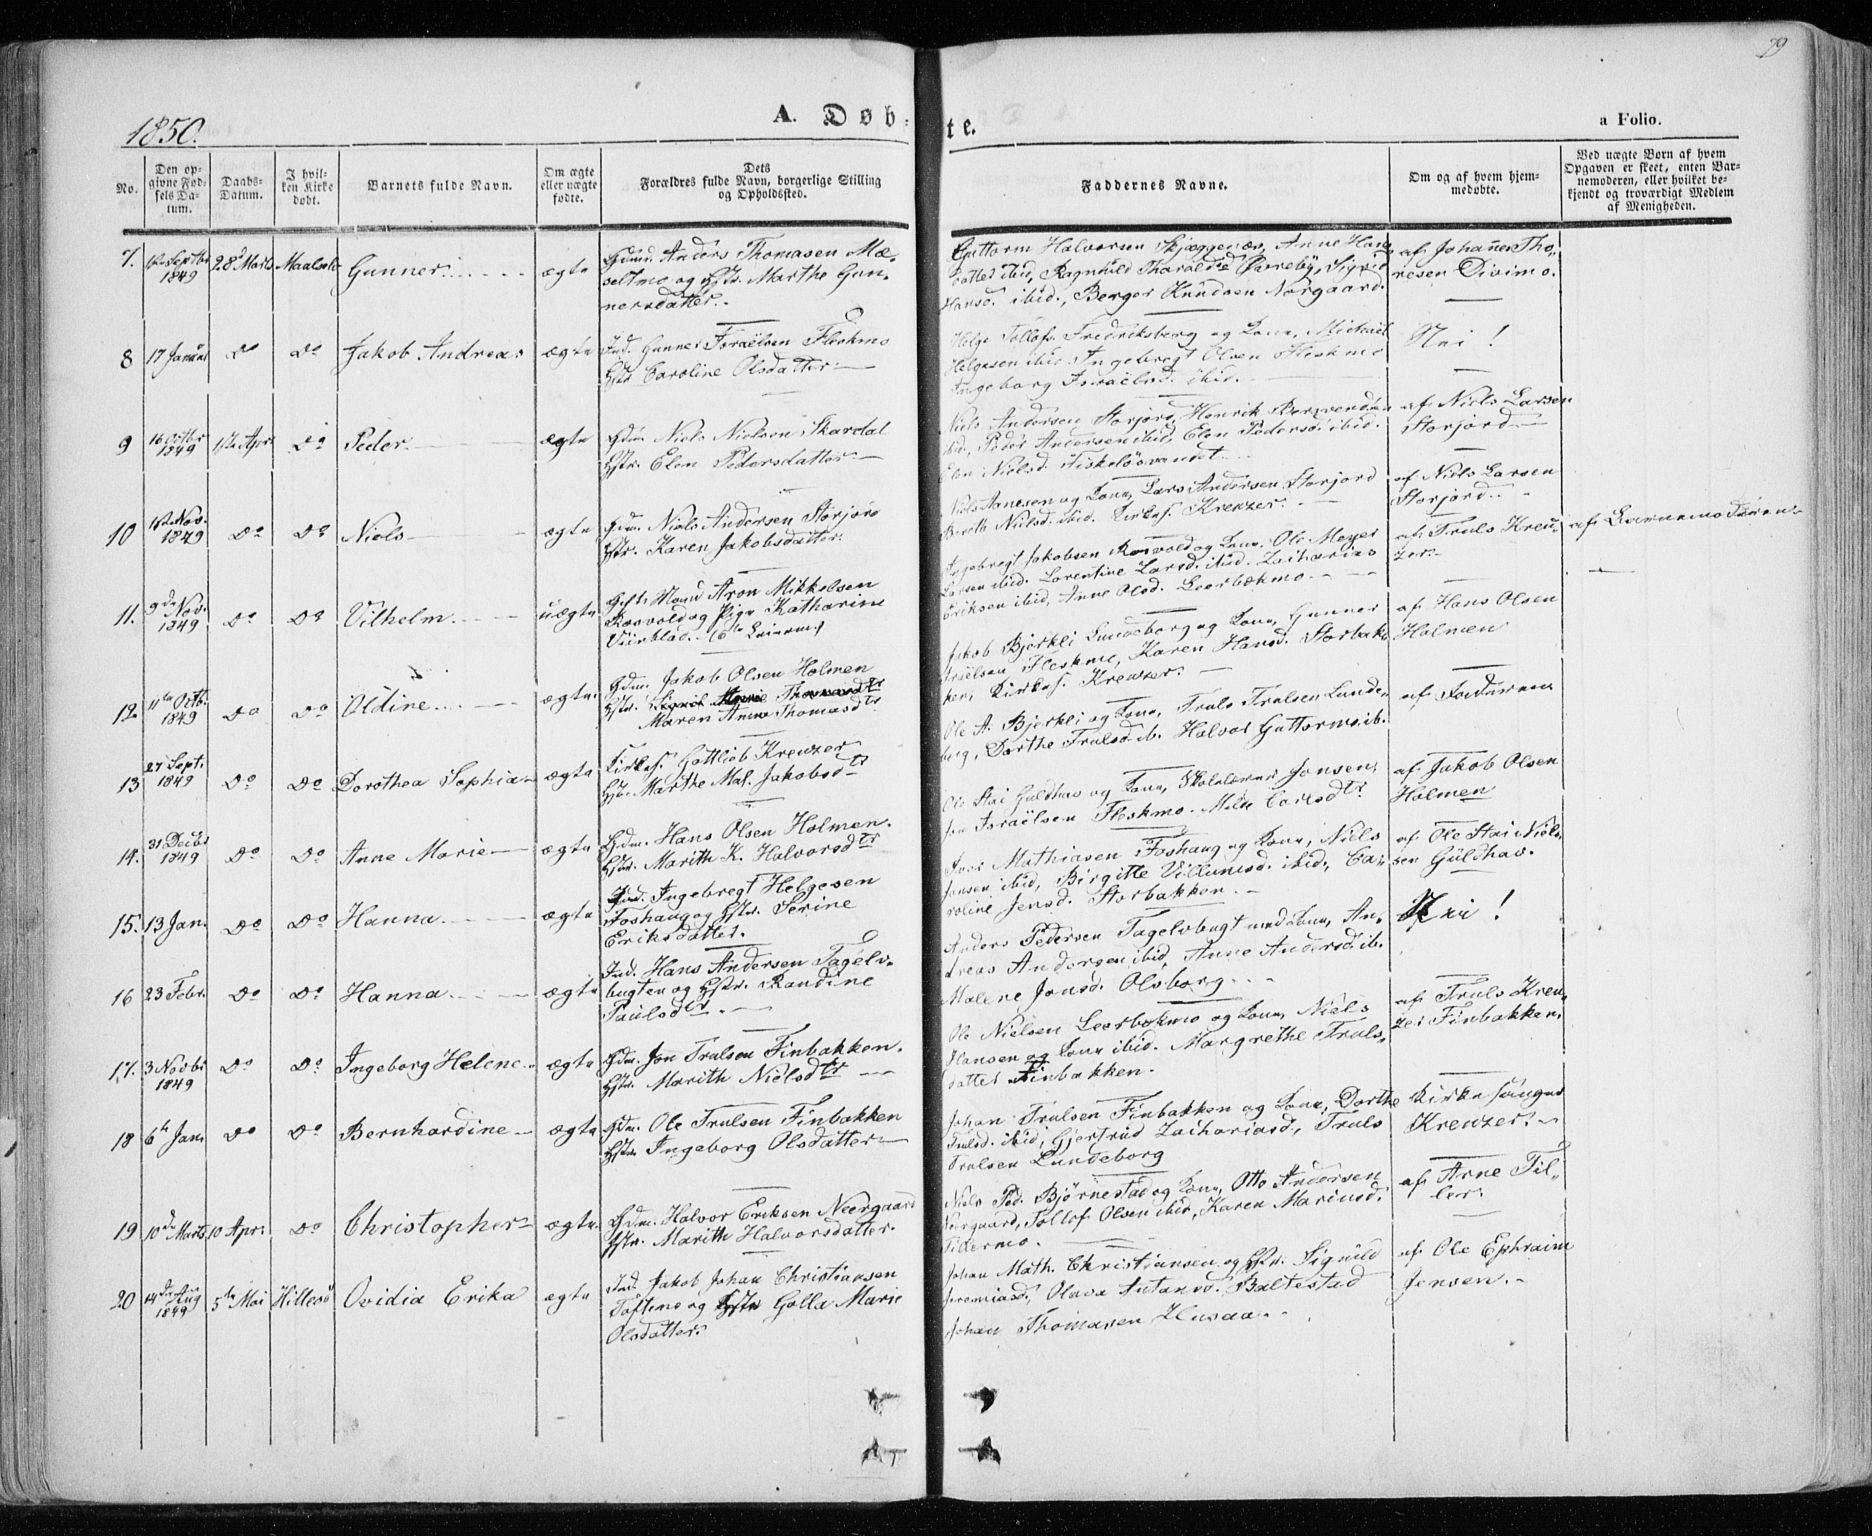 29
1850.
A. Døb-
te.
a Folio.
No.
Den op-
givne Fød-
sels Da-
tum.
Daabs-
Datum.
I hvil-
ken Kirke
døbt.
Barnets fulde Navn.
Om ægte
eller uægte
fødte.
Dets
Forældres fulde Navn, borgerlige Stilling
og Opholdssted.
Faddernes Navne.
Om og af hvem hjem-
medøbte.
Ved uægte Børn af hvem
Opgaven er skeet, enten Bar-
nemoderen, eller hvilket be-
kjendt og troværdigt Medlem
af Menigheden.
7. Septbr 1849 28 Marts Maalselv Gunner ægte
Gdmd. Anders Thomasen Mæ-
seltmo og Hstr. Marthe Gun-
nersdatter.
Guttorm Halvorsen Skjæggenæs, Anne Hans
datter ibid, Ragnhild Tharaldsd Øvreby, Sigrid
Hansd. ibid., Berger Knudsen Norgaard.
af Johanes Tho-
resen Divimo.
8 17 Januar Do Do Jakob Andreas ægte
Ind. Gunner Israëlsen Fleskmo
Hstr Caroline Olsdatter
Helge Tollofs. Fredriksberg og Kone, Michael
Helgesen ibid Ingebregt Olsen Fleskmo
Ingeborg Israëlsd. ibid.
Nei!
9 16 Octbr 1849 1ste Apr Do Peder ægte
Gdm. Niels Nielsen Skardal
Hstr. Elen Pedersdatter
Niels Andersen Storjord, Henrik
ibid, Peder Andersen ibid, Elen Pedersd. ibid.
Elen Nielsd. Fiskeløsvandet.
af Niels Larsen
Storjord
10 Nov. 1849 Do Do Niels ægte
Gdm. Niels Andersen Storjord
Hstr. Karen Jakobsdatter
Niels Arnesen og Kone, Lars Andersen Storjord
Berith Nielsd. ibid. Kirkes. Kreutzer.
af Niels Larsen
Storjord.
11. 9de Nov. 1849 Do Do Vilhelm uægte
Gift Mand Aron Mikkelsen
Rosvold og Pige Katharine
Ingebregt Jakobsen Rosvold og Kone, Ole Meyer
Larsen ibid. Lorentine Larsd. ibid. Zacharias
Eriksen ibid, Anne Olsd. Leerbækmo
af Truls Kreu-
zer
af Barnemoderen
12. 11te Octb. 1849 Do Do Oldine ægte
Gdm. Jakob Olsen Holmen
Hstr.
Maren Anne Thomasdtr
Jakob Bjerkli Lundeborg og Kone, Gunner
Israelsen Fleskmo, Karen Hansd. Storbak-
ken, Kirkes. Kreuzer.
af Hans Olsen
Holmen
13 27 Sept. 1849 Do Do Dorothea Sophia ægte
Kirkes. Gottlieb Kreuzer
Hstr. Marthe Mal. Jakobsdtr
Ole A. Bjerkli og Kone, Truls Trulsen Lunde-
berg, Dorthe Trulsd. ib. Halvor Guttormsen ib.
af Faderen
14. 31 Decbr 1849 Do Do Anne Marie ægte
Gdm. Hans Olsen Holmen
Hstr. Marith K. Halvorsdtr
Ole Stai Guldhav og Kone, Skolelærer Jensen,
Jon Israëlsen Fleskmo. Carlsdtr
af Jakob Olsen
Holmen
15. 13 Jan. Do Do Hanna ægte
Gdm. Ingebregt Helgesen
Foshaug og Hstr. Serine
Eriksdatter.
Iver Mathiasen Foshaug og Kone, Niels
Jensen ibid, Birgitte Villumsd. ibid., Ca-
roline Jensd. Storbakken.
af Ole Stai Niel-
sen Guldhav.
16 23 Febr. Do Do Hanna ægte
Ind. Hans Andersen Tagelv-
bugten og Hstr. Randine
Paulsdtr.
Anders Pedersen Tagelvbugt med Kone, An-
dreas Andersen ibid, Anne Andersd. ib.
Malene Jonsd. Olsborg
Nei!
17. 3 Novbr 1849 Do Do Ingeborg Helene ægte
Gdm. Jon Trulsen Finbakken.
Hstr. Marith Nielsdtr
Ole Nielsen Leerbækmo og Kone, Niels
Hansen og Kone ibid. Margrethe Truls-
datter Finbakken.
af Truls Kreu-
zer Finbakken.
18 6te Jan. Do Do Bernhardine ægte
Gdm. Ole Trulsen Finbakken
Hstr. Ingeborg Olsdatter
Johan Trulsen Finbakken og Kone, Dorthe
Trulsd. ibid, Gjertrud Zachariasd., Truls
Trulsen Lundeborg
Kirkesanger
Kreuzer.
19 10de Marts 10 Apr. Do Christopher ægte
Gdm. Halvor Eriksen Neergaard
Hstr. Marith Halvorsdatter.
Niels Ped. Bjørnestad og Kone, Otto Andersen
Neergaard, Tollof Olsen ibid, Karen Mariusd.
af Arne Til-
ler.
20 14de Aug 1849 5te Mai Hillesø Ovidia Erika ægte
Ind. Jakob Johan Christiansen
Toftene og Hstr Golla Marie
Olsdatter.
Johan Math. Christiansen og Hstr. Signild
Jeremiasd, Olava Antonsd. Baltestad
Johan Thomasen Husaa.
af Ole Ephraim
Jensen.